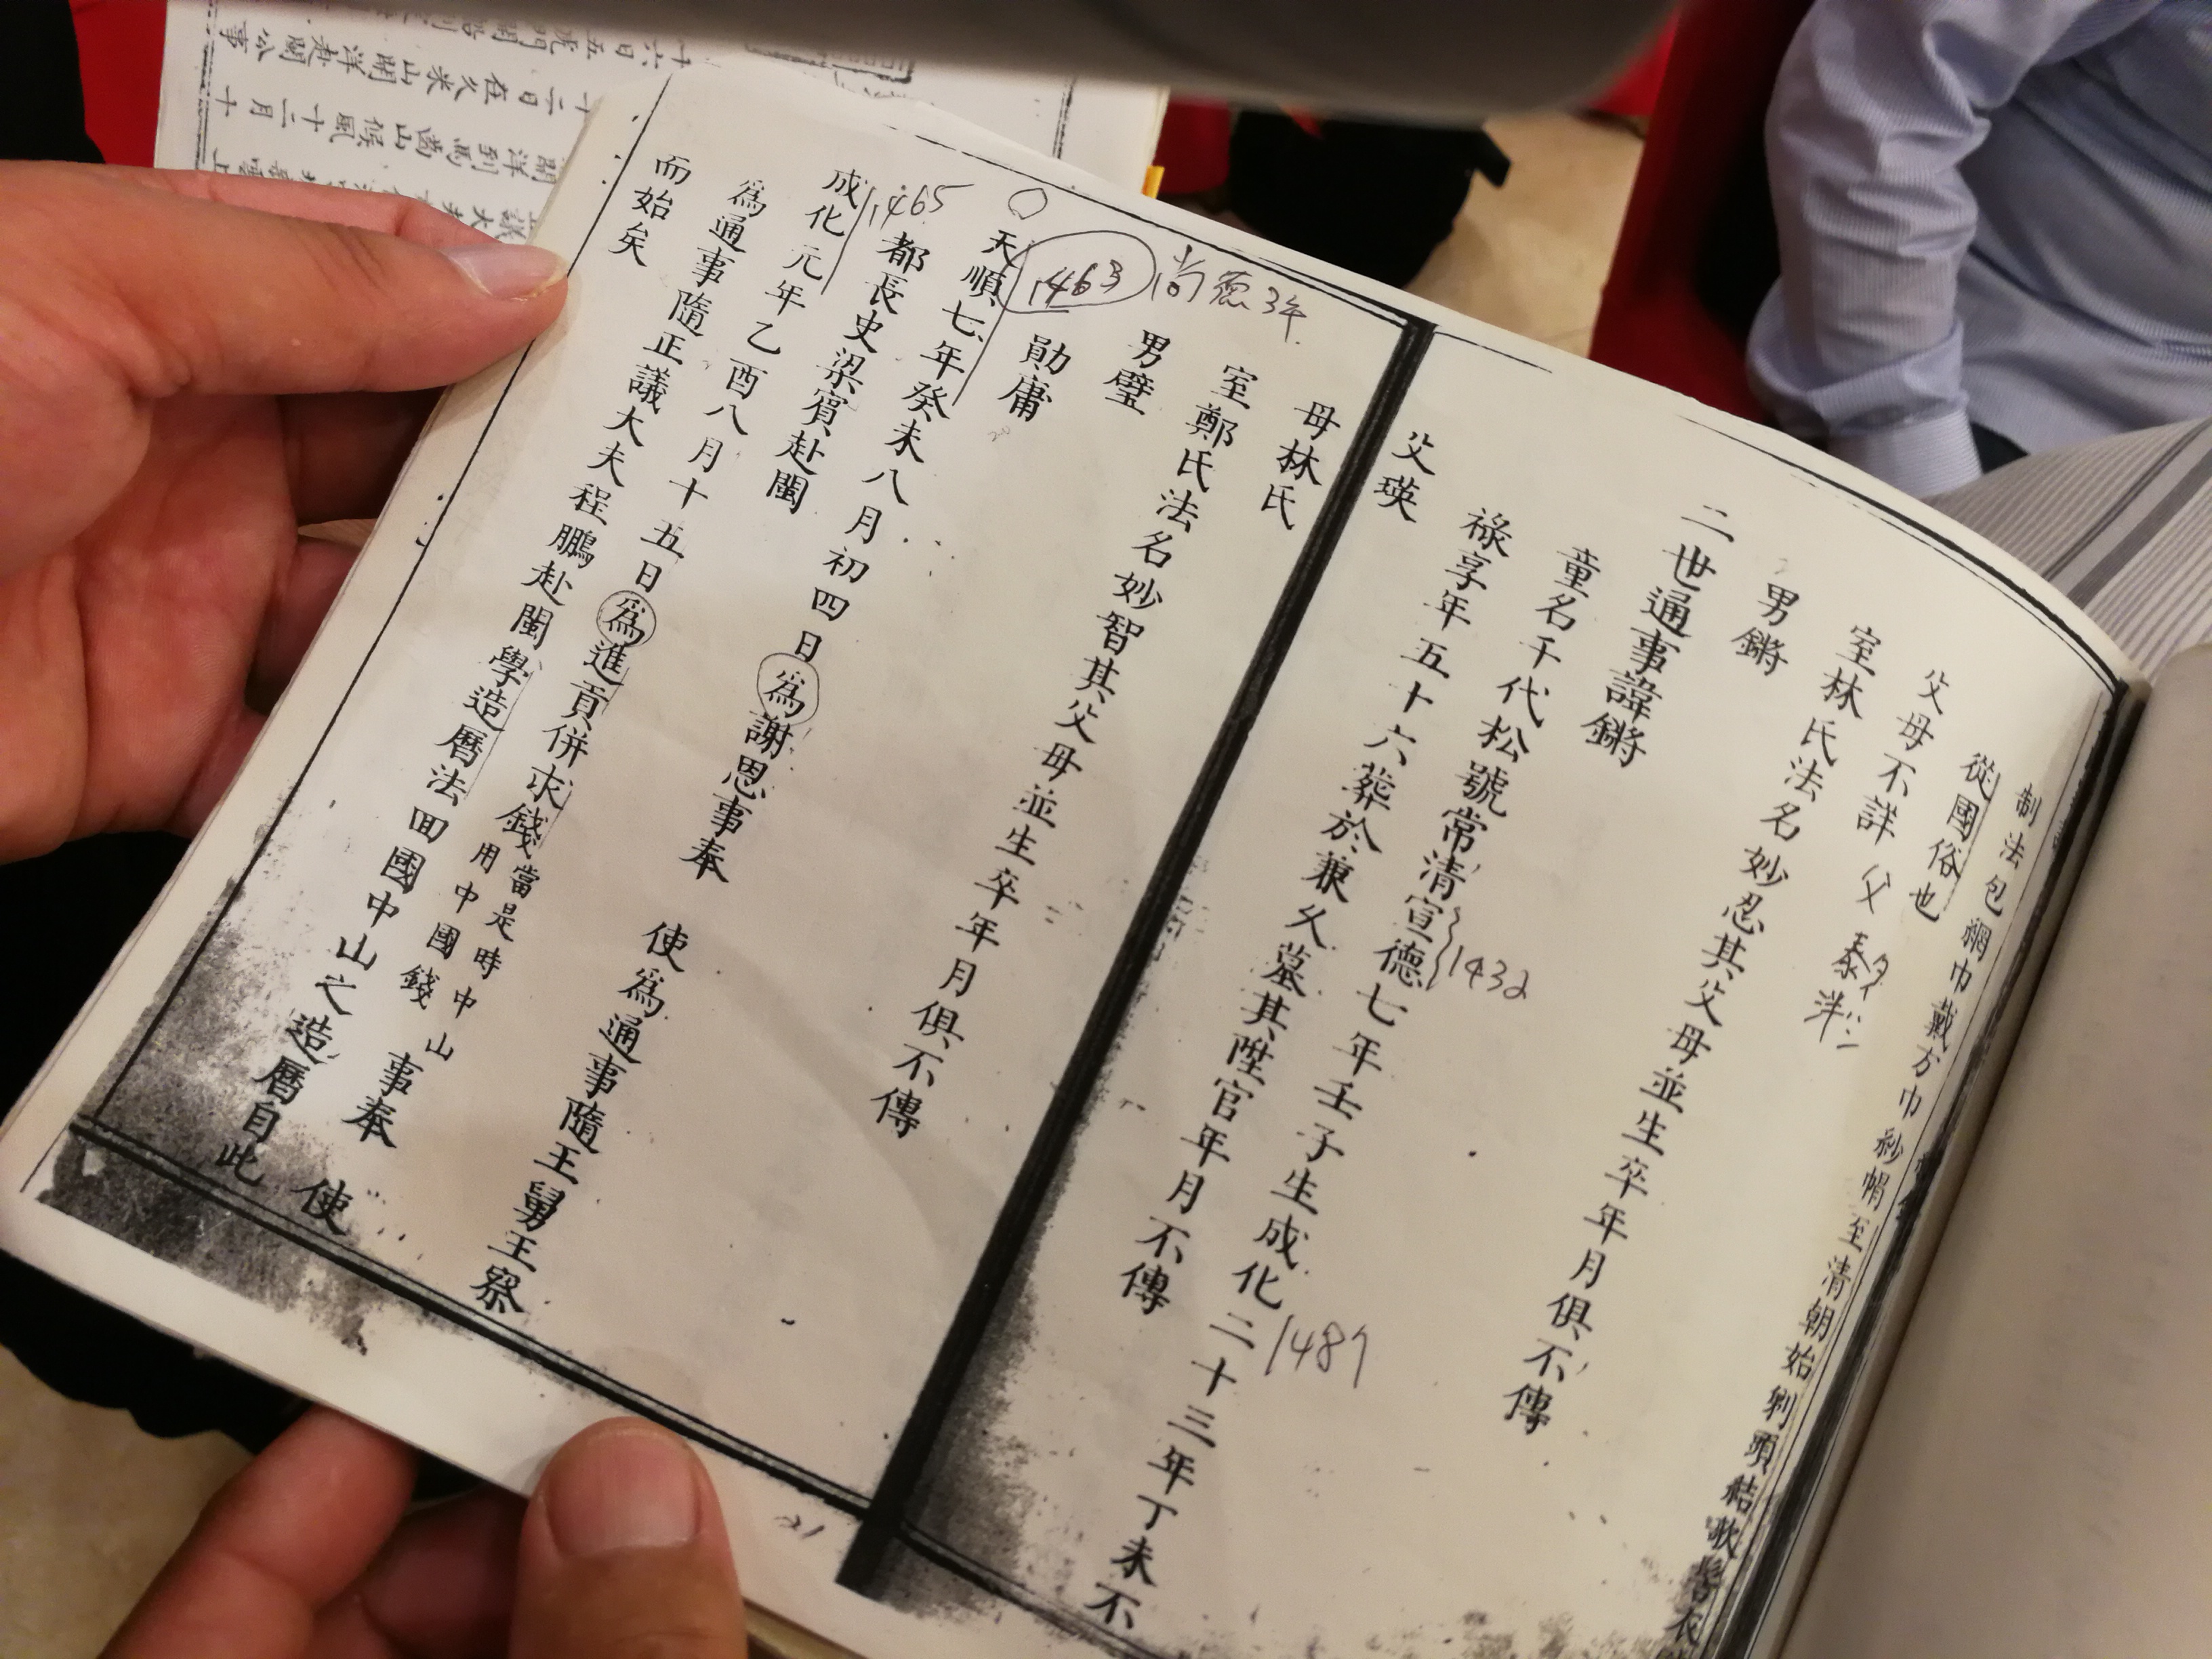 制法包網巾戴方巾紗帽至清朝始剃頭結欹髻衣
從國俗也
父母不詳 父 泰
室林氏法名妙忍其父母並生卒年月俱不傳
男鏘
二世通事諱鏘
童名千代松號常清宣德七年壬子生成化二十三年丁未不
1432
1487
祿享年五十六葬於兼久墓其陞官年月不傳
父瑛
母林氏
室鄭氏法名妙智其父母並生卒年月俱不傳
男璧
尚德3年
勛庸
1463
天順七年癸未八月初四日為謝恩事奉 使為通事隨王舅王察
都長史梁賓赴閩
1465
成化元年乙酉八月十五日為進貢併求錢當是時中山用中國錢事奉 使
為通事隨正議大夫程鵬赴閩學造曆法回國中山之造曆自此
而始矣
21